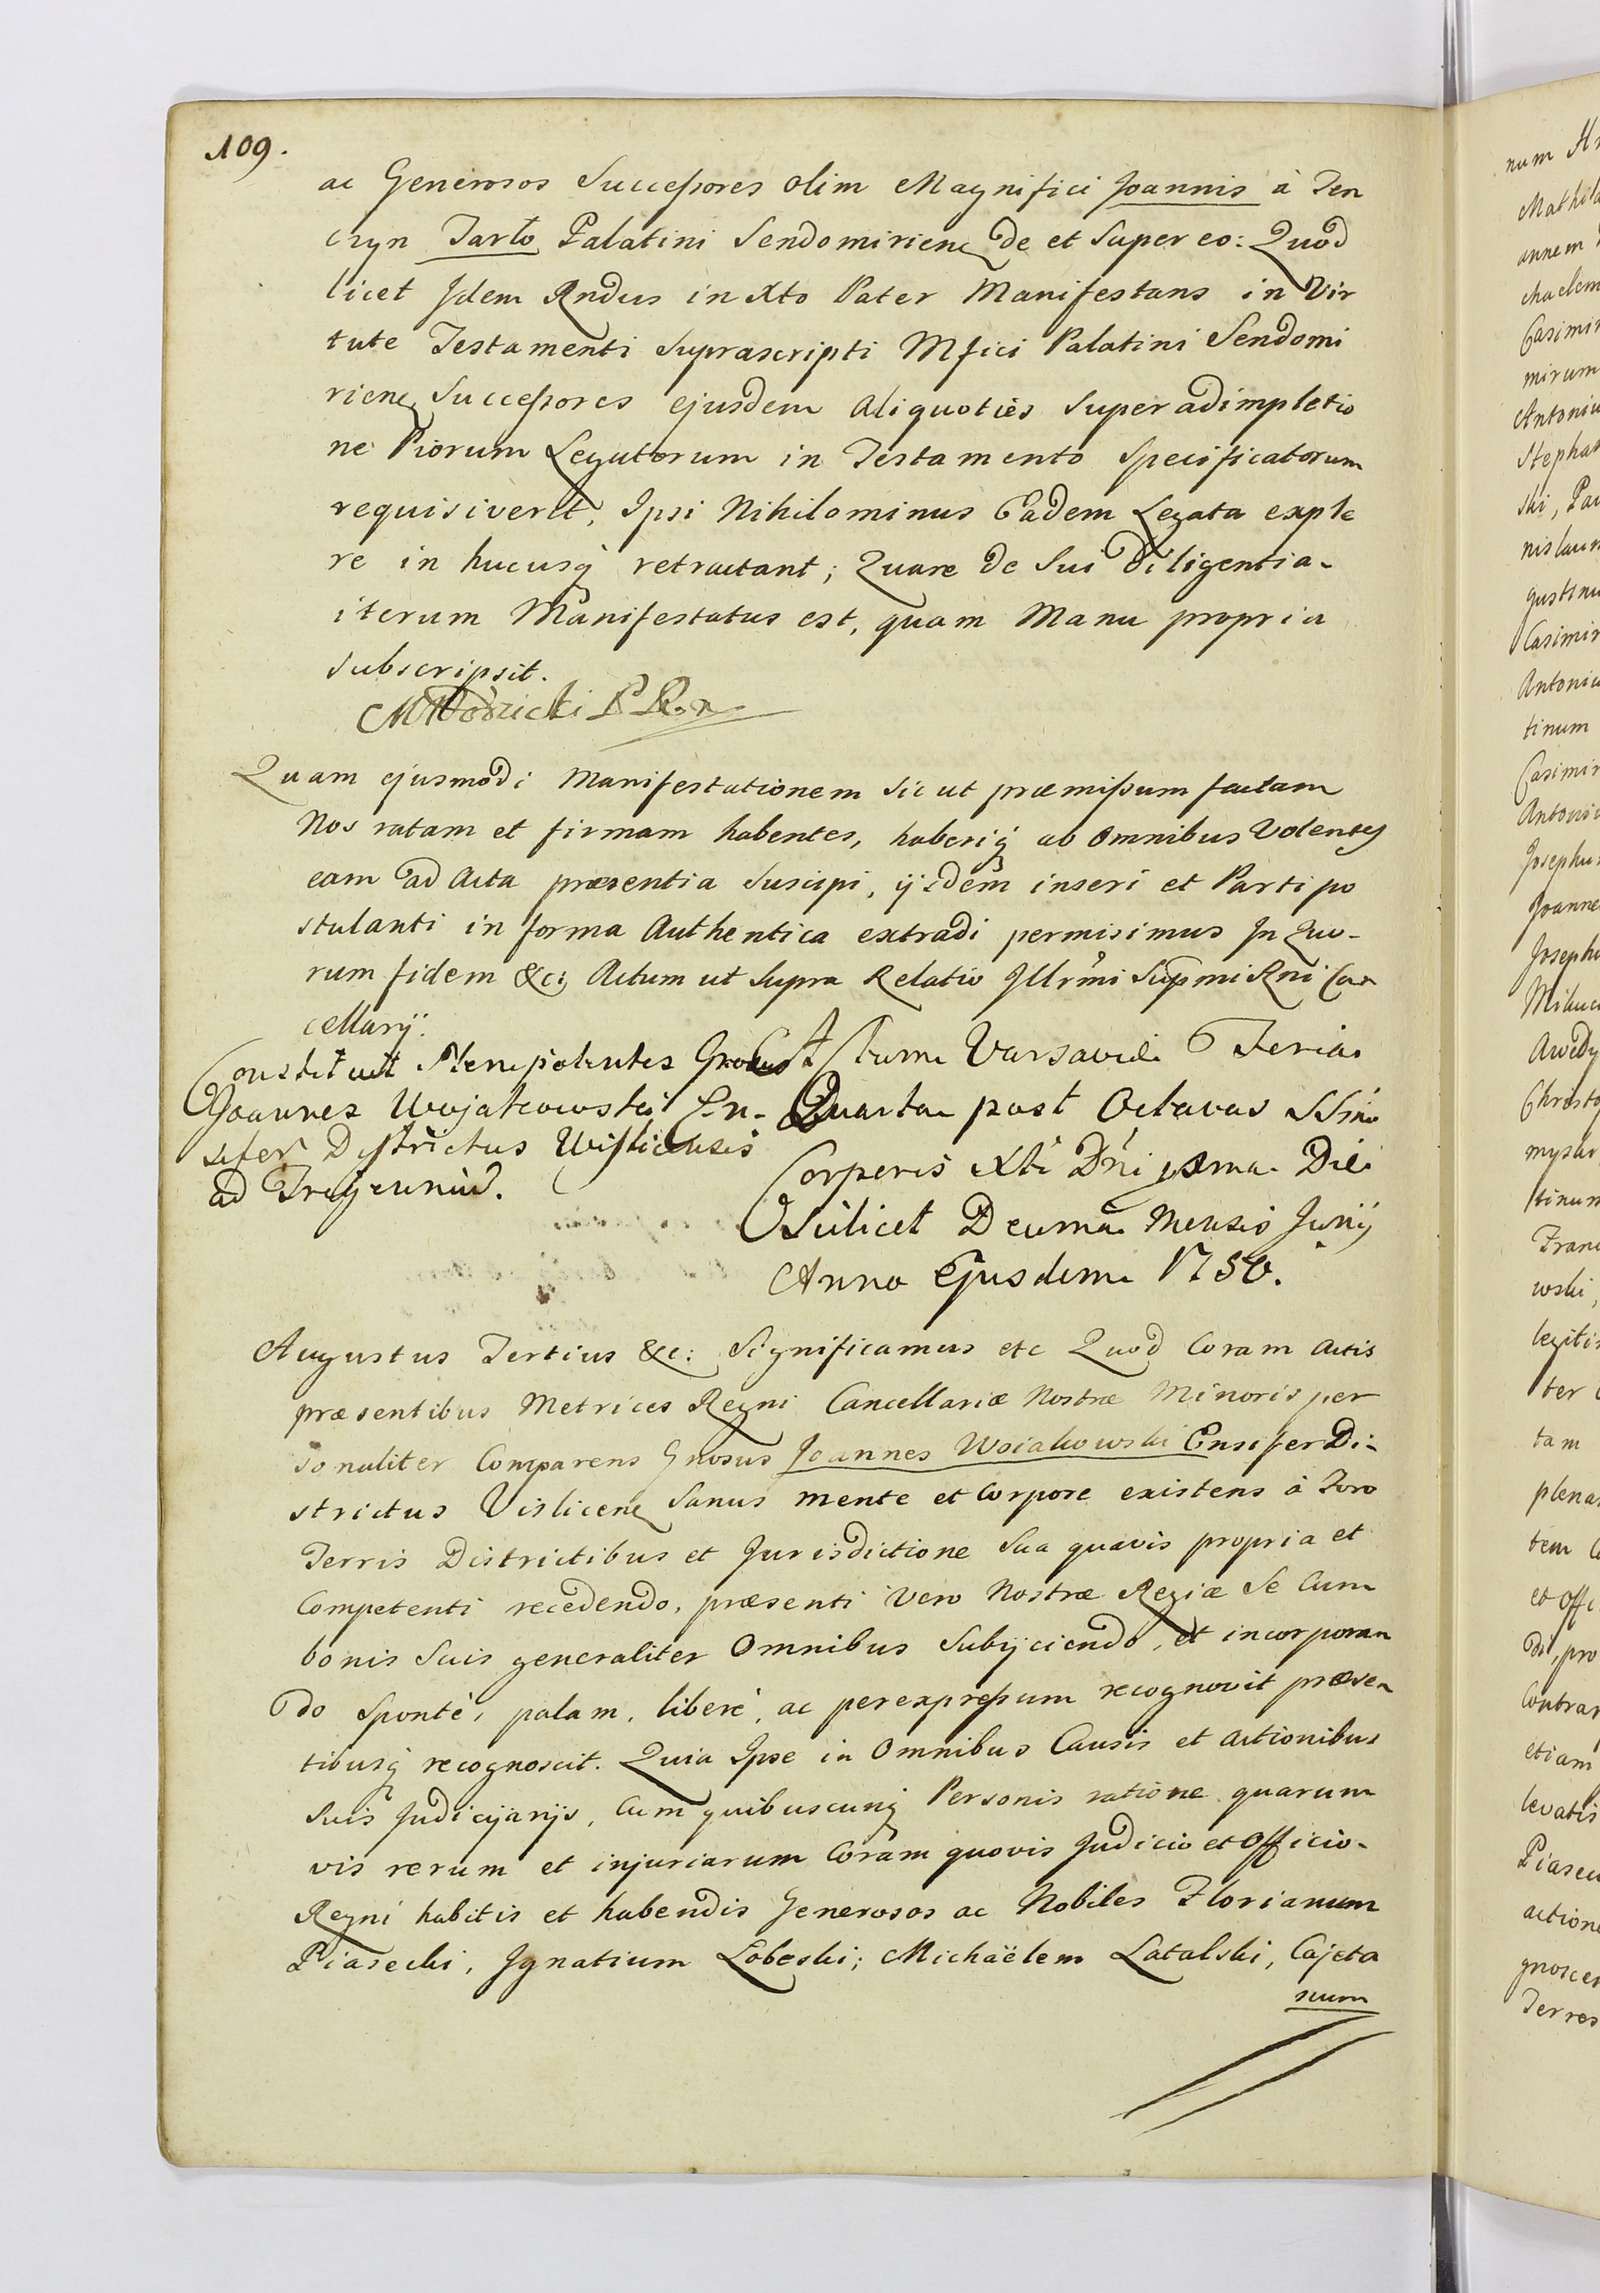 109.
ac Generosos Successores olim Magnifici Joannis à Ten
czyn Tarło Palatini Sendomirien̄ de et super eo: Quod
licet Idem Rndus in Xto Pater Manifestans in Vir
tute Testamenti suprascripti Mfici Palatini Sendomi
rien̄ Successores ejusdem aliquoties super adimpletio
ne Piorum Legatorum in Testamento specificatorum
requisiverit, Ipsi Nihilominus Eadem Legata exple
re in hucusq̀ retractant; Quare de sui diligentia
iterum Manifestatus est, quam Manu propria
subscripsit.
Quam ejusmodi Manifestationem sic ut præmissum factam
Nos ratam et firmam habentes, haberiq̀ ab omnibus Volentes
eam ad Acta præsentia suscipi, ijsdemq̀ inseri et Parti po
stulanti in forma Authentica extradi permisimus In Quo-
rum fidem &c: Actum ut supra Relatio Illr̃mi Supmi Rni Can
cellarij.
Constituit Plenipotentes Grosus
Joannes Wojakowski En-
sifer Districtus Wislicensis
ad Trijennium.
Actum Varsaviæ Feria
Quarta post Octavas SSimi
Corporis Xti Dñi ipsma Die
scilicet Decima Mensis Junij
Anno Ejusdem 1750.
Augustus Tertius &c: Significamus etc Quod Coram Actis
præsentibus Metrices Regni Cancellariæ Nostræ Minoris per
sonaliter Comparens Gnosus Joannes Woiakowski Ensifer Di-
strictus Vislicen̄ Sanus mente et Corpore existens à Foro
Terris Districtibus et Jurisdictione Sua quavis propria et
Competenti recedendo, præsenti Vero Nostræ Regiæ Se Cum
bonis Suis generaliter Omnibus Subijciendo, et incorporan
do Spontè, palam, liberè, ac per expressum recognovit præsen
tibusq̀ recognoscit. Quia Ipse in Omnibus Causis et Actionibus
Suis Judicijarijs, Cum quibuscunq̀ Personis ratione quarum
vis rerum et injuriarum Coram quovis Judicio et Officio
Regni habitis et habendis Generosos ac Nobiles Florianum
Piasecki, Ignatium Łobeski; Michaëlem Latalski, Cajeta
num